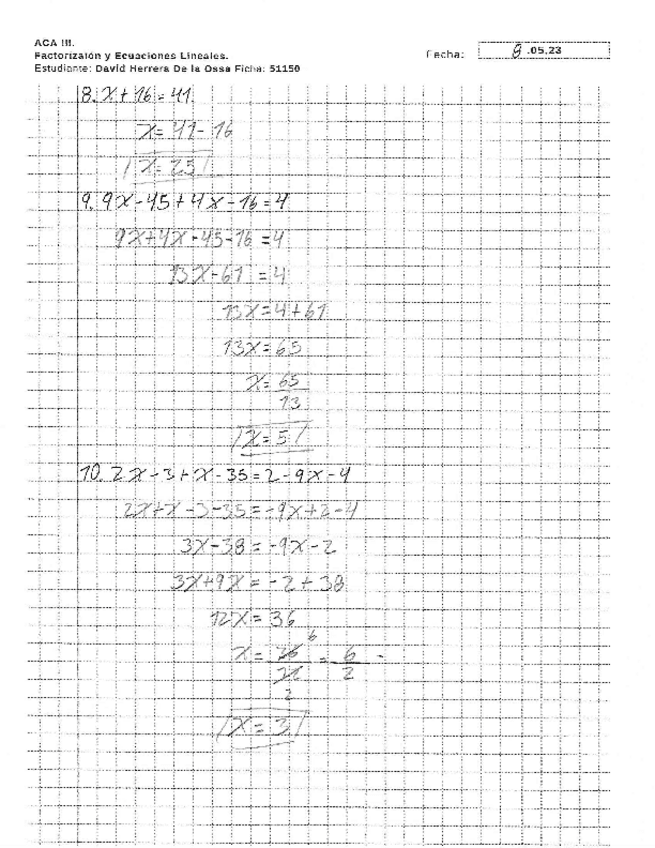 ACA III.
Factorizaión y Ecuaciones Lineales.
Estudiante: David Herrera De la Ossa Ficha: 51150
Fecha: 8.05.23
8. x + 16 = 41
x = 41 - 16
x = 25
9. 9x - 45 + 4x - 16 = 4
9x + 4x - 45 - 16 = 4
13x - 61 = 4
13x = 4 + 61
13x = 65
x = 65/13
x = 5
10. 2x - 3 + x - 35 = 2 - 9x - 4
2x + x - 3 - 35 = -9x + 2 - 4
3x - 38 = -9x - 2
3x + 9x = -2 + 38
12x = 36
x = 36/12 = 6/2 =
x = 3